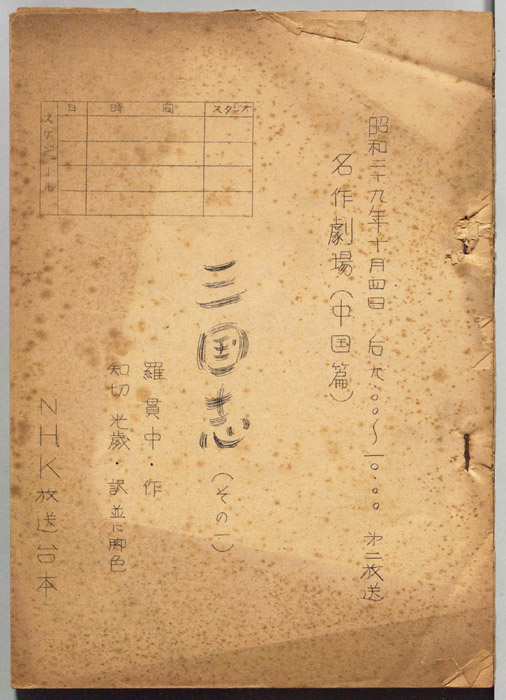 昭和二十九年十月四日 后九.〇〇〜一〇.〇〇 第二放送
名作劇場(中国篇)
三国志(その一)
羅貫中・作
知切光歳・訳並に脚色
NHK放送台本
日 時間 スタジオ
スケジュール